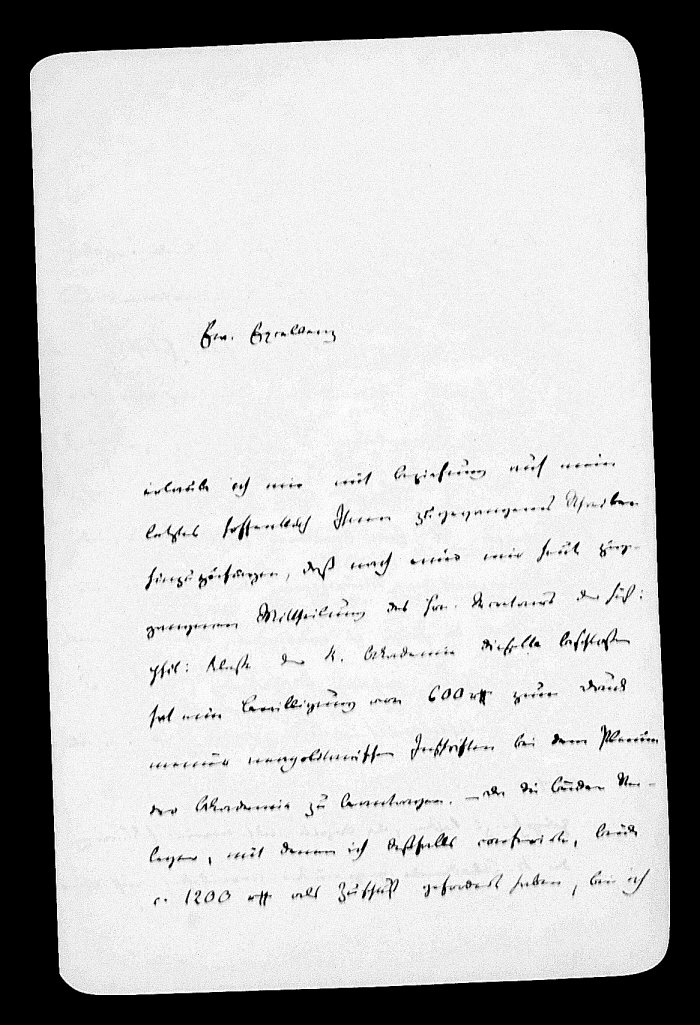 Ew. Excellenz
erlaube ich mir mit Beziehung auf mein
letztes hoffentlich Ihnen zugegangenes Schreiben
hinzuzufügen, daß nach einer mir heute zuge-
gangenen Mittheilung des Hrn. Secretars der hist:
phil: Klasse der K. Akademie dieselbe beschlossen
hat eine Bewilligung von 600 rℳ zum Druck
meiner neapolitanischen Inschriften bei dem Plenum
der Akademie zu beantragen. – Da die beiden Ver-
leger, mit denen ich deßfalls conferirte, beide
c. 1200 rℳ als Zuschuß gefordert haben, bin ich